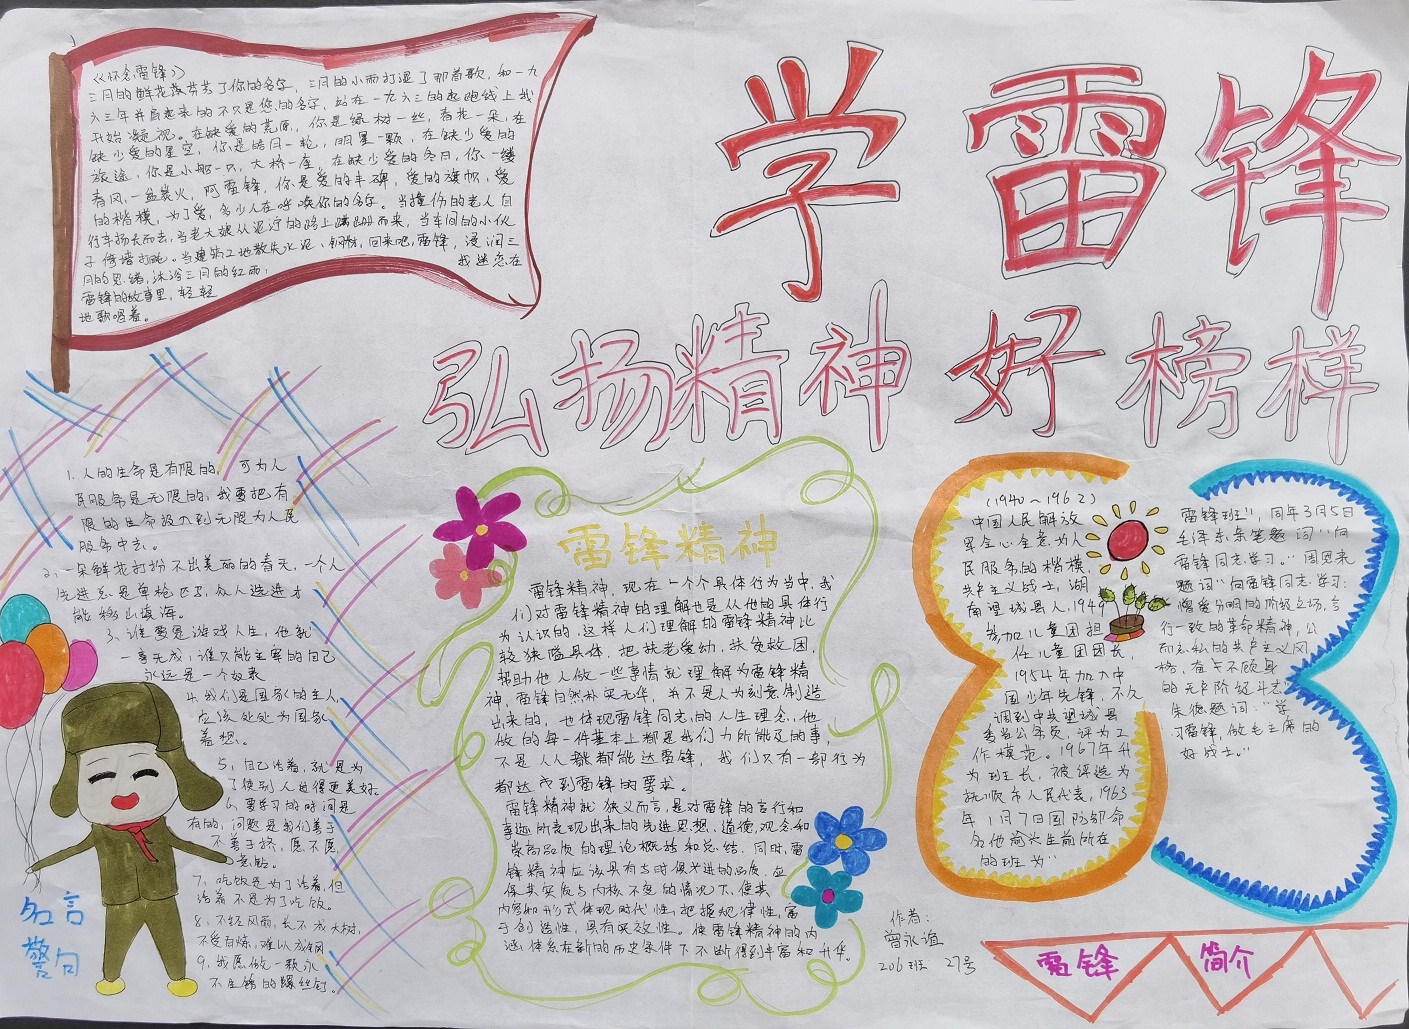 学雷锋
弘扬精神好榜样
《怀念雷锋》
三月的鲜花芬芳了你的名字，三月的小雨打湿了那首歌，和一九
六三年并肩起来的不只是您的名字，站在一九六三的起跑线上我
开始凝视。在缺爱的荒原，你是绿树一丝，春花一朵，在
缺少爱的星空，你是皓月一轮，明星一颗，在缺少爱的
旅途，你是小船一只，大桥一座，在缺少爱的冬日，你一缕
春风，一盆炭火，阿雷锋，你是爱的丰碑，爱的旗帜，爱
的楷模，为了爱，多少人在呼唤你的名字。当撞伤的老人自
行车扬长而去，当老大娘从泥泞的路上蹒跚而来，当车间的小伙
子倚墙打盹。当建筑工地散失水泥、钢材，回来吧，雷锋，浸润三
月的思绪，沐浴三月的红雨， 我迷恋在
雷锋的故事里，轻轻
地歌唱着。
1、人的生命是有限的，可为人
民服务是无限的，我要把有
限的生命投入到无限为人民
服务中去。
2、一朵鲜花打扮不出美丽的春天，一个人
先进总是单枪匹马，众人先进才
能移山填海。
3、谁要是游戏人生，他就
一事无成，谁不能主宰的自己
永远是一个奴隶
4、我们是国家的主人，
应该处处为国家
着想。
5、自己活着，就是为
了使别人过得更美好。
6、要学习的时间是
有的，问题是我们善于
不善于挤，愿不愿
意钻。
7、吃饭是为了活着，但
活着不是为了吃饭。
8、不经风雨，长不成大树，
不受百炼，难以成钢
9、我愿做一颗永
不生锈的螺丝钉。
名言
警句
雷锋精神
雷锋精神，现在一个个具体行为当中，我
们对雷锋精神的理解也是从他的具体行
为认识的，这样人们理解的雷锋精神比
较狭隘具体，把扶老爱幼，扶贫救困，
帮助他人做一些事情就理解为雷锋精
神，雷锋自然朴实无华，并不是人为刻意制造
出来的，也体现雷锋同志的人生理念，他
做的每一件基本上都是我们力所能及的事，
不是人人都能达雷锋，我们只有一部行为
都达成到雷锋的要求。
雷锋精神就狭义而言，是对雷锋的言行和
事迹所表现出来的先进思想，道德，观念和
崇高品质的理论概括和总结，同时，雷
锋精神应该具有与时俱进的品质，应
保其实质与内核不变的情况下，使其
内容和形式体现时代性，把握规律性，富
于创造性，具有实效性。使雷锋精神的内
涵体系在新的历史条件下不断得到丰富和升华。
(1940～1962)
中国人民解放
军全心全意为人
民服务的楷模，
共产主义战士，湖
南望城县人，1949
参加儿童团担
任儿童团团长，
1954年加入中
国少年先锋，不久
调到中共望城县
委当公务员，评为工
作模范。1967年升
为班长，被评选为
抚顺市人民代表，1963
年1月7日国防部命
名他前长生前所在
的班为“
雷锋班”，同年3月5日
毛泽东亲笔题词“向
雷锋同志学习。”周恩来
题词“向雷锋同志学习：
憎爱分明的阶级立场，言
行一致的革命精神，公
而忘私的共产主义风
格，奋不顾身
的无产阶级斗志
朱德题词：“学
习雷锋，做毛主席的
好战士。”
作者：
曾永谊
206班 27号
雷锋 简介